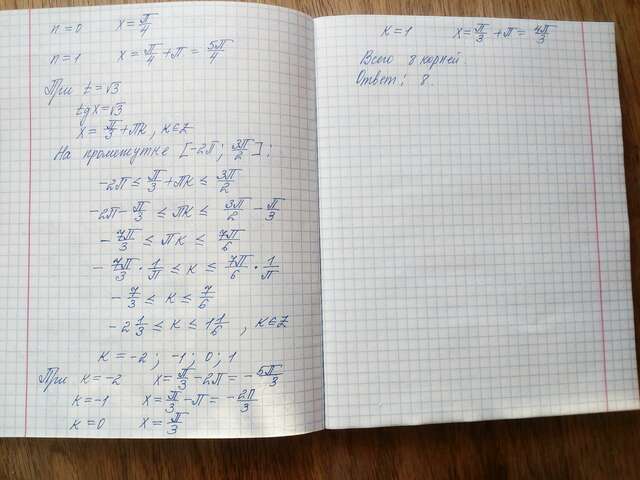 n = 0 x = π/4
n = 1 x = π/4 + π = 5π/4
При t = √3
tg x = √3
x = π/3 + πk, k ∈ Z
На промежутке [-2π; 3π/2]:
-2π ≤ π/3 + πk ≤ 3π/2
-2π - π/3 ≤ πk ≤ 3π/2 - π/3
-7π/3 ≤ πk ≤ 7π/6
-7π/3 · 1/π ≤ k ≤ 7π/6 · 1/π
-7/3 ≤ k ≤ 7/6
-2 1/3 ≤ k ≤ 1 1/6, k ∈ Z
k = -2; -1; 0; 1
При k = -2 x = π/3 - 2π = -5π/3
k = -1 x = π/3 - π = -2π/3
k = 0 x = π/3
k = 1 x = π/3 + π = 4π/3
Всего 8 корней.
Ответ: 8.